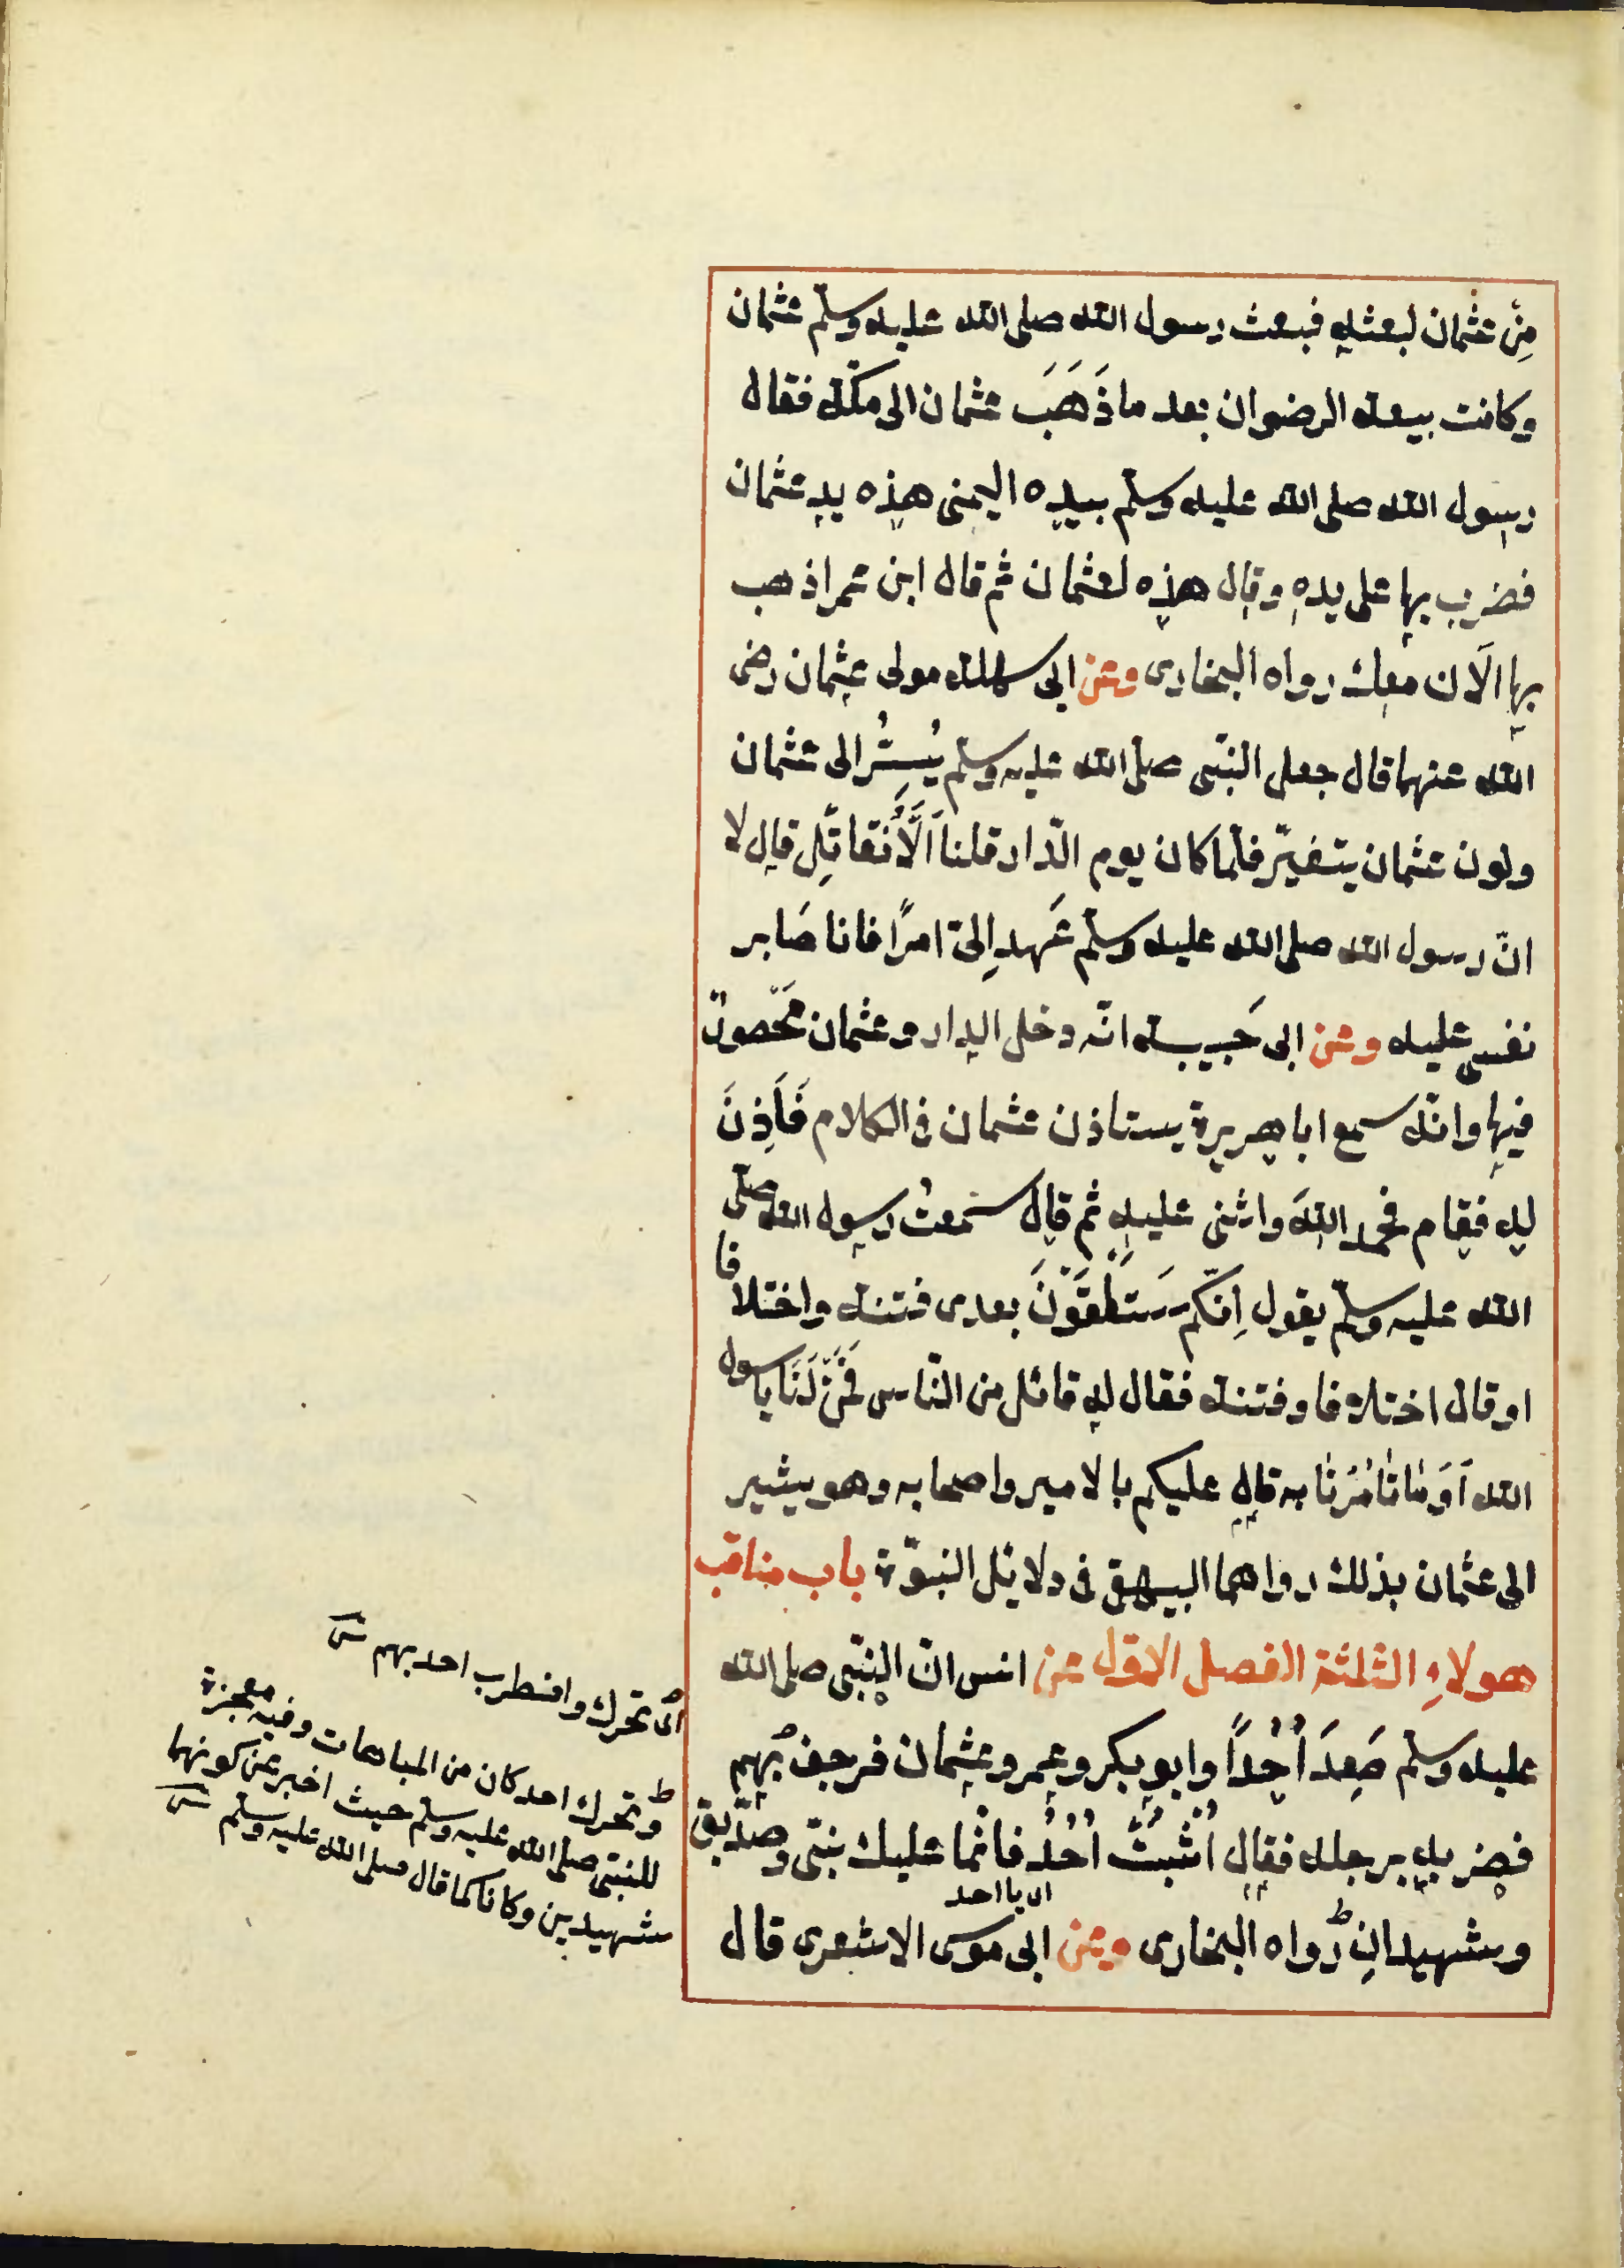 مِنْ عثمان لبعثه فبعث رسول الله صلى الله عليه وسلّم عثمان
وكانت بيعة الرضوان بعد ما ذَهَبَ عثمان الى مكّة فقال
رسول الله صلى الله عليه وسلّم بيده اليمنى هذه يد عثمان
فضرب بها على يده وقال هذه لعثمان ثم قال ابن عمر اذهب
بها الآن معك رواه البخارى وعن ابى سهلة مولى عثمان رضى
الله عنهما قال جعل النّبى صلى الله عليه وسلّم يُسِرُّ الى عثمان
ولون عثمان يتغيّر فلّما كان يوم الدّار قلنا اَلَا نُقاتِل قال لا
انّ رسول الله صلى الله عليه وسلّم عَهد اِلىّ امرًا فانا صَابر
نفسى عليه وعن ابى حَبيبة انّه دخل الدار وعثمان مَحْصورٌ
فيها وانّه سمع ابا هريرة يستاذن عثمان فى الكلام فَاَذِنَ
له فقام فحمد اللهَ واثنى عليه ثم قال سمعتُ رسول الله صلّى
الله عليه وسلّم يقول اِنّكم سَتَلْقَوْنَ بعدى فتنة واختلافا
او قال اختلافا وفتنة فقال له قائل من النّاس فَمَنْ لَنَا يا رسول
الله اَوَ مَا تَأمُرُنَا به قال عليكم بالامير واصحابه وهو يشير
الى عثمان بذلك رواهما البيهقى فى دلايل النبوّة باب مناقب
هولاءِ الثلثة الفصل الاوّل عن انس انّ النّبى صلى الله
عليه وسلّم صَعِدَ اُحُدًا وابو بكر وعمر وعثمان فرجف بهم
فضربه برجله فقال اُثْبُتْ اُحُدُ فانّما عليك نبىّ وصدّيق
اى يا احد
وشهيدانِ رواه البخارى وعن ابى موسى الاشعرى قال
اى تحرك واضطرب احد بهم
وتحرك احد كان من المباهات وفيه معجزة
للنبىّ صلى الله عليه وسلّم حيث اخبر عن كونهما
شهيدين وكانا كما قال صلى الله عليه وسلّم